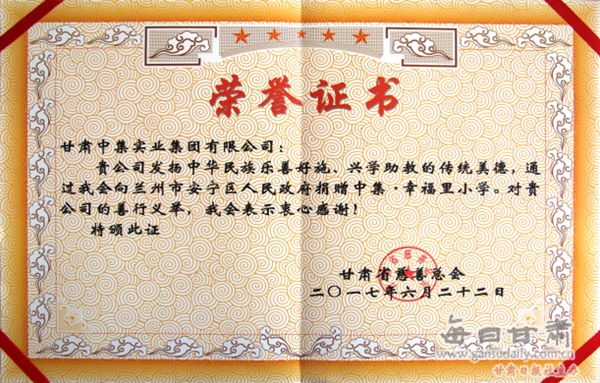 荣誉证书
甘肃中集实业集团有限公司：
贵公司发扬中华民族乐善好施、兴学助教的传统美德，通
过我会向兰州市安宁区人民政府捐赠中集·幸福里小学。对贵
公司的善行义举，我会表示衷心感谢！
特颁此证
甘肃省慈善总会
二〇一七年六月二十二日
每日甘肃
www.gansudaily.com.cn
甘肃日报社主办